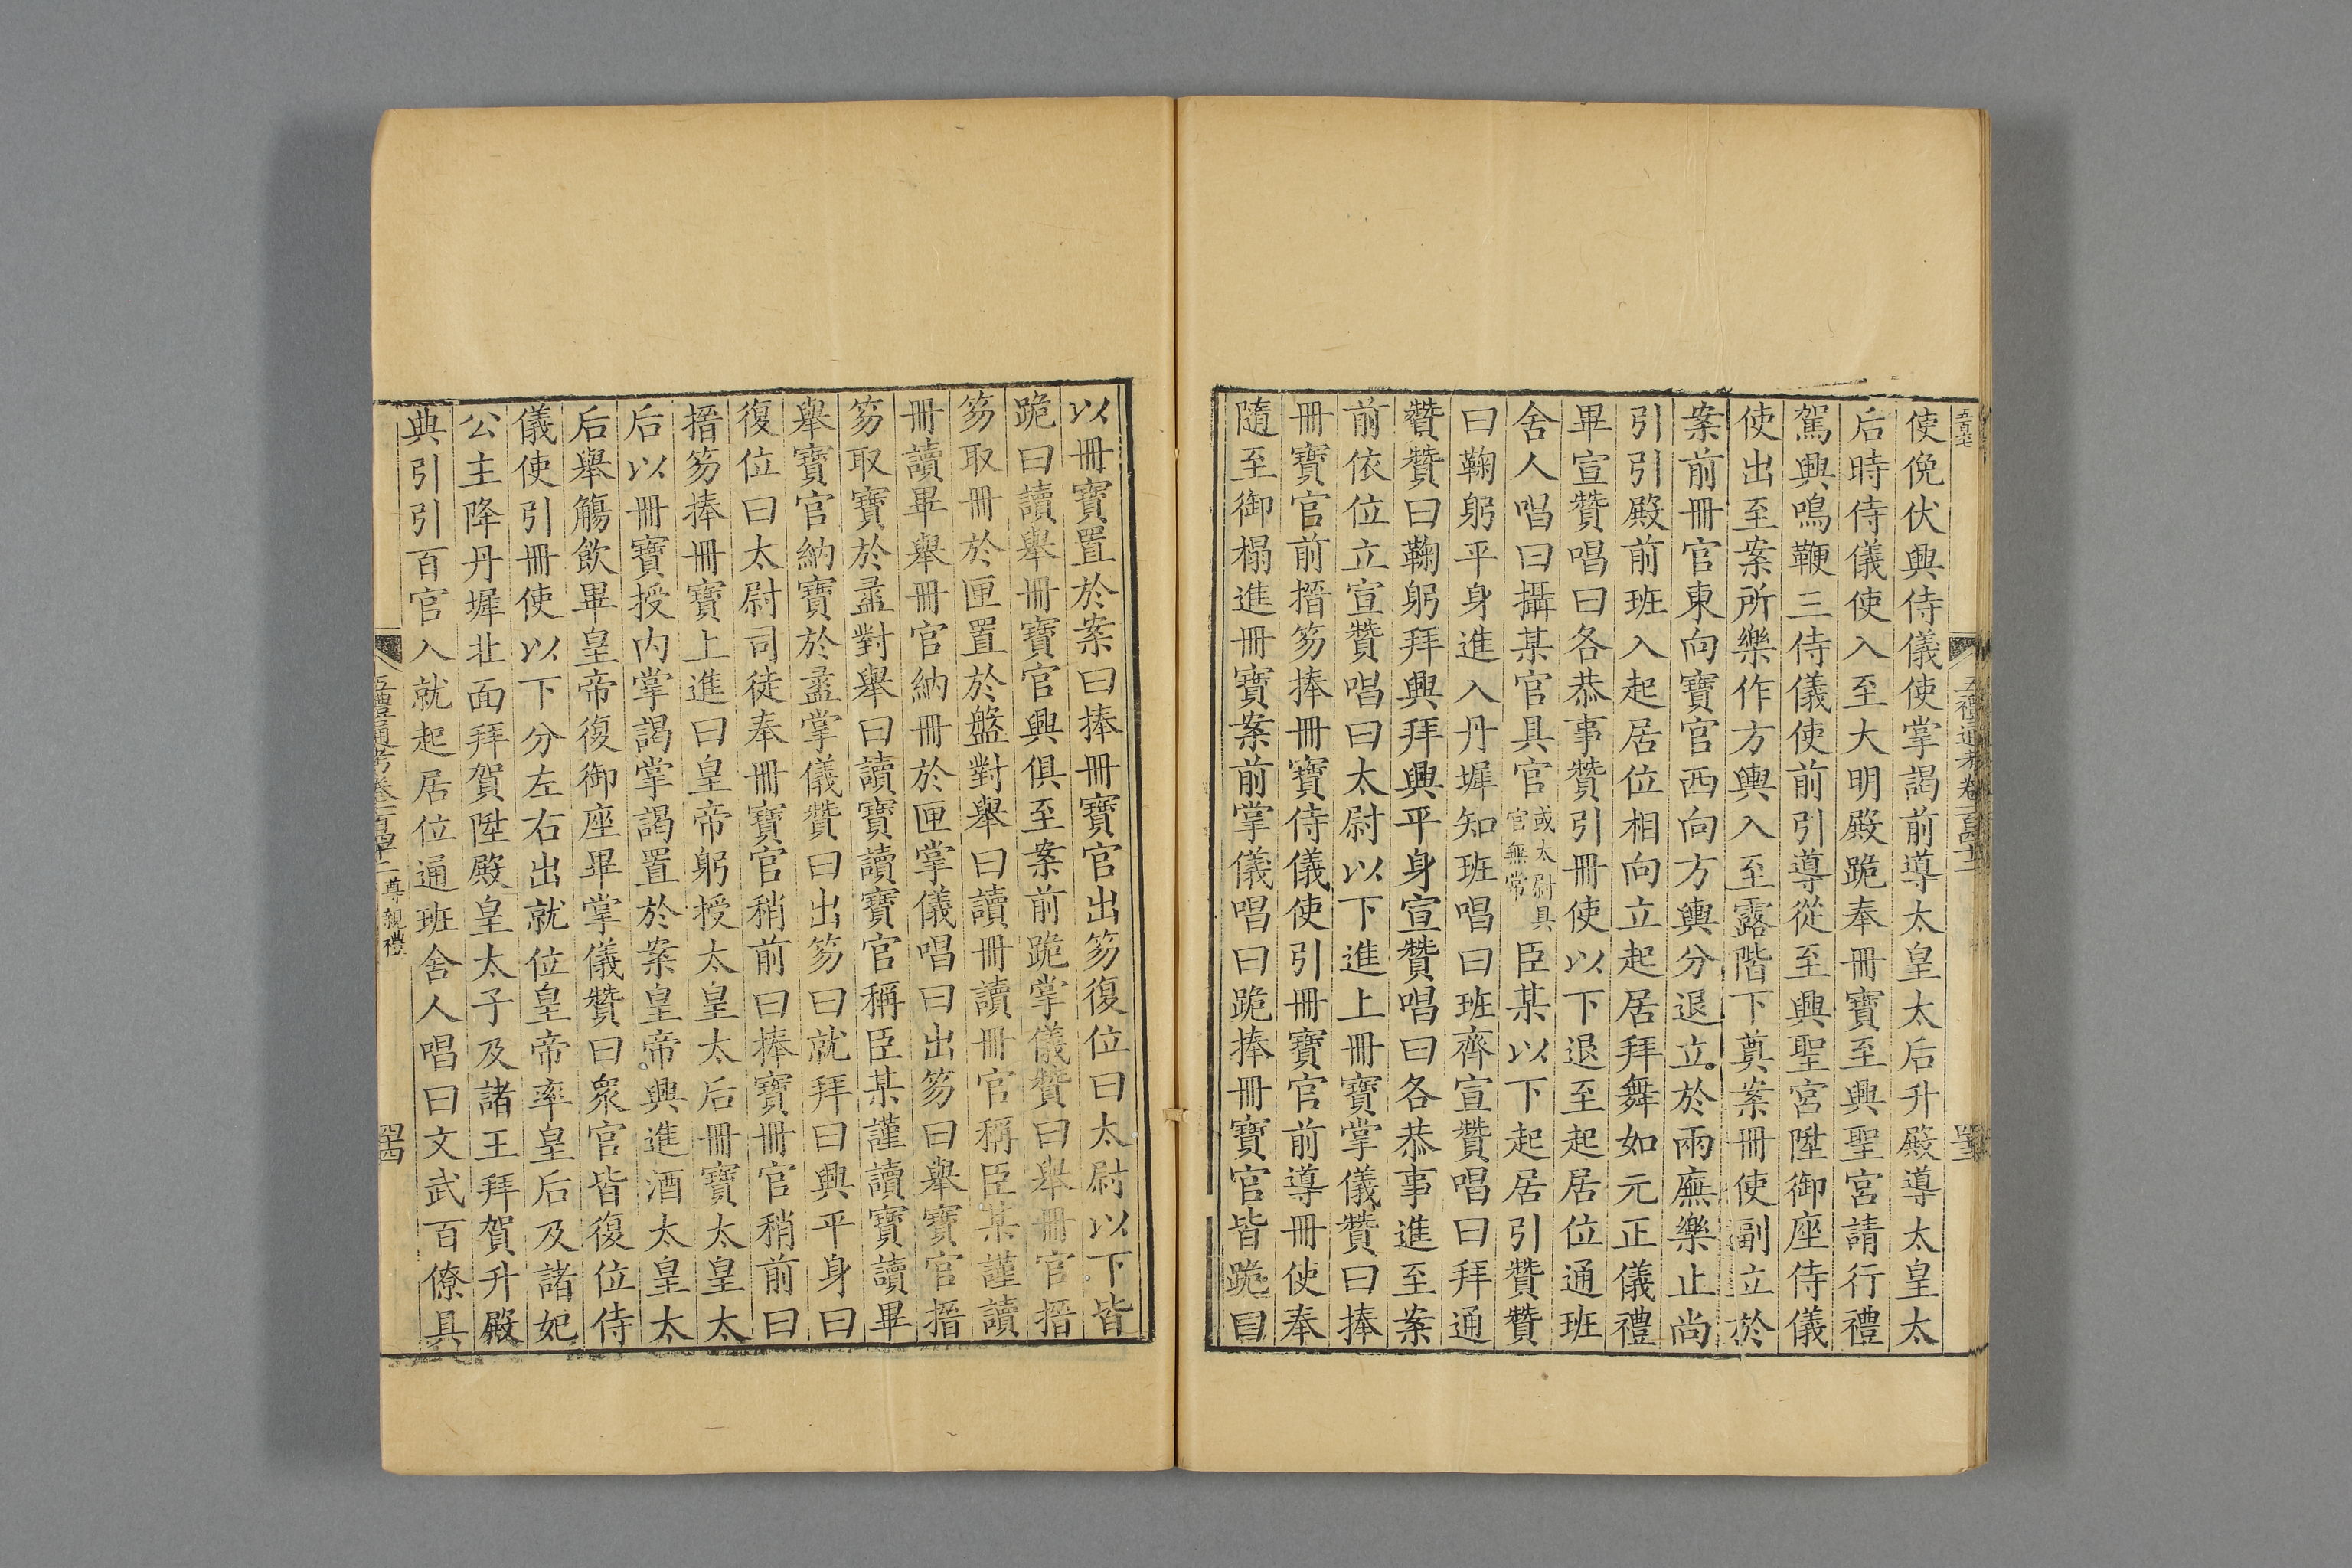 使俛伏興侍儀使掌謁前導太皇太后升殿導太皇太
后時侍儀使入至大明殿跪奉冊寶至興聖宮請行禮
駕興鳴鞭三侍儀使前引導從至興聖宮陞御座侍儀
使出至案所樂作方輿入至露階下奠案冊使副立於
案前冊官東向寶官西向方輿分退立於兩廡樂止尚
引引殿前班入起居位相向立起居拜舞如元正儀禮
畢宣贊唱曰各恭事贊引冊使以下退至起居位通班
舍人唱曰攝某官具官或太尉具官無常臣某以下起居引贊贊
曰鞠躬平身進入丹墀知班唱曰班齊宣贊唱曰拜通
贊贊曰鞠躬拜興拜興平身宣贊唱曰各恭事進至案
前依位立宣贊唱曰太尉以下進上冊寶掌儀贊曰捧
冊寶官前搢笏捧冊寶侍儀使引冊寶官前導冊使奉
隨至御榻進冊寶案前掌儀唱曰跪捧冊寶官皆跪曰
以冊寶置於案曰捧冊寶官出笏復位曰太尉以下皆
跪曰讀舉冊寶官興俱至案前跪掌儀贊曰舉冊官搢
笏取冊於匣置於盤對舉曰讀冊讀冊官稱臣某謹讀
冊讀畢舉冊官納冊於匣掌儀唱曰出笏曰舉寶官搢
笏取寶於盝對舉曰讀寶讀寶官稱臣某謹讀寶讀畢
舉寶官納寶於盝掌儀贊曰出笏曰就拜曰興平身曰
復位曰太尉司徒奉冊寶官稍前曰捧寶冊官稍前曰
搢笏捧冊寶上進曰皇帝躬授太皇太后冊寶太皇太
后以冊寶授內掌謁掌謁置於案皇帝興進酒太皇太
后舉觴飲畢皇帝復御座畢掌儀贊曰眾官皆復位侍
儀使引冊使以下分左右出就位皇帝率皇后及諸妃
公主降丹墀北面拜賀陞殿皇太子及諸王拜賀升殿
典引引百官入就起居位通班舍人唱曰文武百僚具
尊親禮